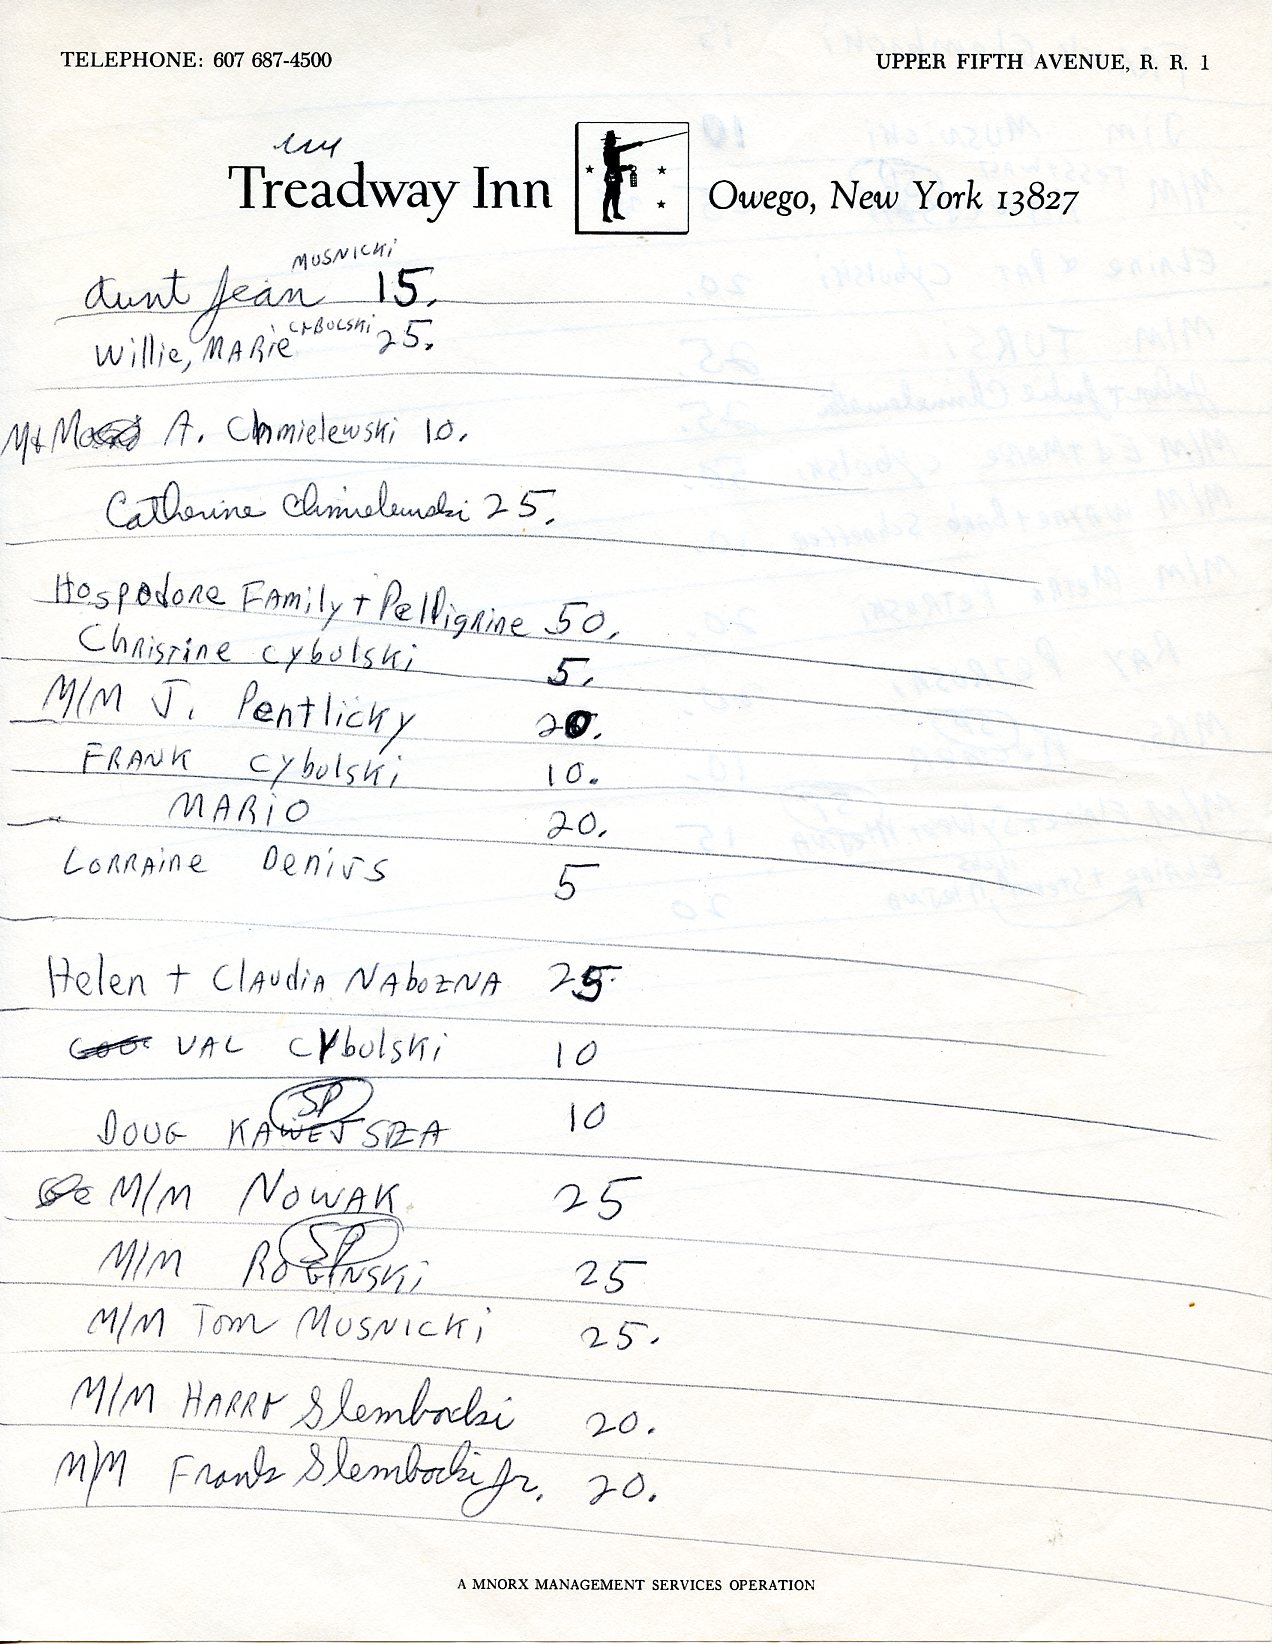 TELEPHONE: 607 687-4500
UPPER FIFTH AVENUE, R. R. 1
Treadway Inn
Owego, New York 13827
MUSNICKI
Aunt Jean 15.
CYBULSKI
Willie, MARie 25.
A. Chmielewski 10.
Catherine Chmielewski 25.
Hospodore Family + Pelligrine 50.
Christine Cybulski 5.
M/M J. Pentlicky 20.
FRANK Cybulski 10.
MARIO 20.
LORRAine Denius 5
Helen + Claudia NABOZNA 25.
VAL Cybulski 10
SP
DOUG 10
M/M NOWAK 25
SP
M/M ROGINSKi 25
M/M Tom MUSNICKi 25.
M/M HARRY Slembocki 20.
M/M Frank Slembocki Jr. 20.
A MNORX MANAGEMENT SERVICES OPERATION